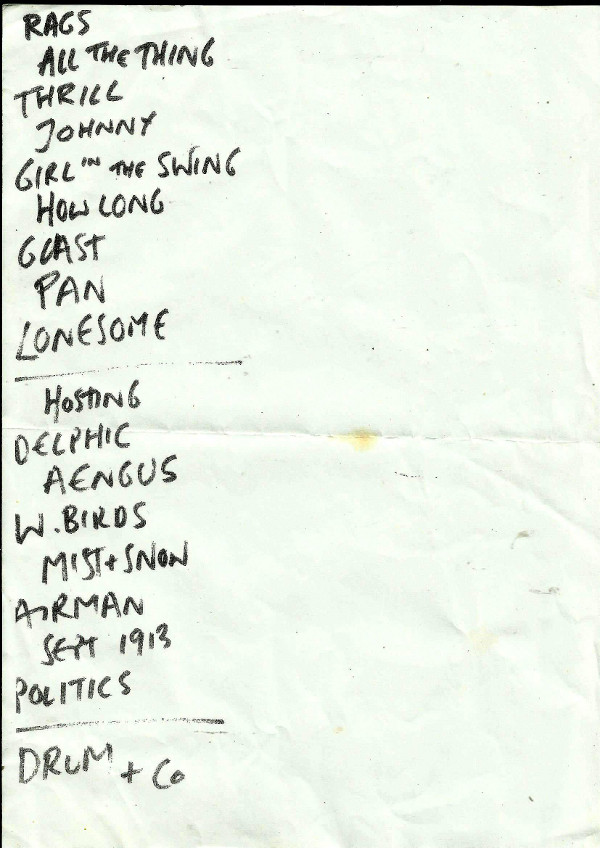 RAGS
ALL THE THING
THRILL
JOHNNY
GIRL IN THE SWING
HOW LONG
GLAST
PAN
LONESOME
HOSTING
DELPHIC
AENGUS
W. BIRDS
MIST + SNOW
AIRMAN
SEPT 1913
POLITICS
DRUM + Co